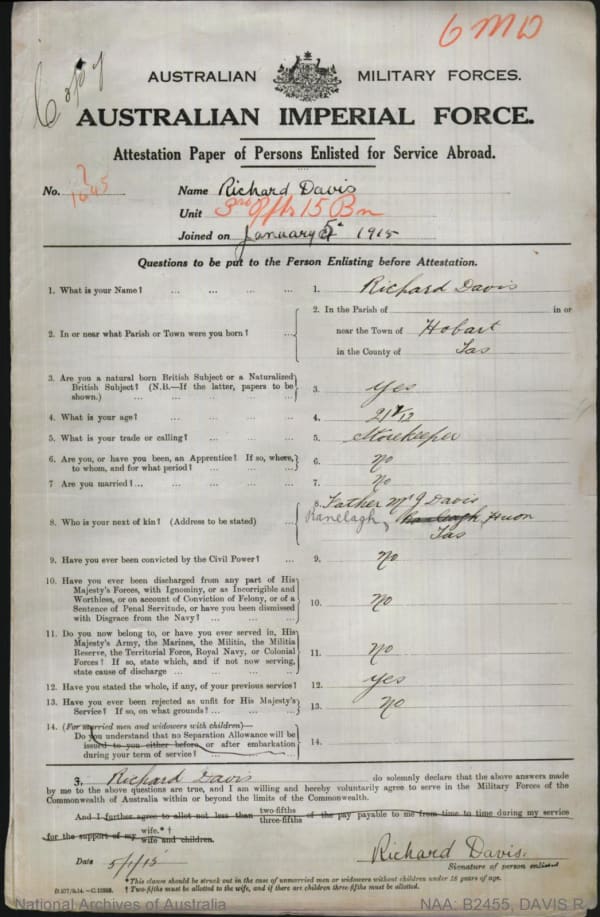 6 MD
Copy
AUSTRALIAN MILITARY FORCES.
AUSTRALIAN IMPERIAL FORCE.
Attestation Paper of Persons Enlisted for Service Abroad.
No. 1645 Name Richard Davis
Unit 3rd Rfts 15 Bn
Joined on January 5th 1915
Questions to be put to the Person Enlisting before Attestation.
1. What is your Name? ... ... ... ... 1. Richard Davis
2. In or near what Parish or Town were you born? ... 2. In the Parish of in or
near the Town of Hobart
in the County of Tas
3. Are you a natural born British Subject or a Naturalized
British Subject? (N.B.—If the latter, papers to be
shown.) ... ... ... ... 3. Yes
4. What is your age? ... ... ... ... 4. 21
5. What is your trade or calling? ... ... ... 5. Storekeeper
6. Are you, or have you been, an Apprentice? If so, where,
to whom, and for what period? ... ... 6. No
7. Are you married? ... ... ... ... 7. No
8. Who is your next of kin? (Address to be stated) ... 8. Father Mr J Davis
Ranelagh, Ranleagh, Huon
Tas
9. Have you ever been convicted by the Civil Power? ... 9. No
10. Have you ever been discharged from any part of His
Majesty's Forces, with Ignominy, or as Incorrigible and
Worthless, or on account of Conviction of Felony, or of a
Sentence of Penal Servitude, or have you been dismissed
with Disgrace from the Navy? ... ... ... 10. No
11. Do you now belong to, or have you ever served in, His
Majesty's Army, the Marines, the Militia, the Militia
Reserve, the Territorial Force, Royal Navy, or Colonial
Forces? If so, state which, and if not now serving,
state cause of discharge ... ... ... 11. No
12. Have you stated the whole, if any, of your previous service? 12. Yes
13. Have you ever been rejected as unfit for His Majesty's
Service? If so, on what grounds? ... ... 13. No
14. (For married men and widowers with children)—
Do you understand that no Separation Allowance will be
issued to you either before or after embarkation
during your term of service? ... ... ... 14.
I, Richard Davis do solemnly declare that the above answers made
by me to the above questions are true, and I am willing and hereby voluntarily agree to serve in the Military Forces of the
Commonwealth of Australia within or beyond the limits of the Commonwealth.
And I further agree to allot not less than two-fifths three-fifths of the pay payable to me from time to time during my service
for the support of my wife.*† wife and children.
Date 5/1/15 Richard Davis.
Signature of person enlisted
*This clause should be struck out in the case of unmarried men or widowers without children under 18 years of age.
† Two-fifths must be allotted to the wife, and if there are children three-fifths must be allotted.
National Archives of Australia NAA: B2455, DAVIS R